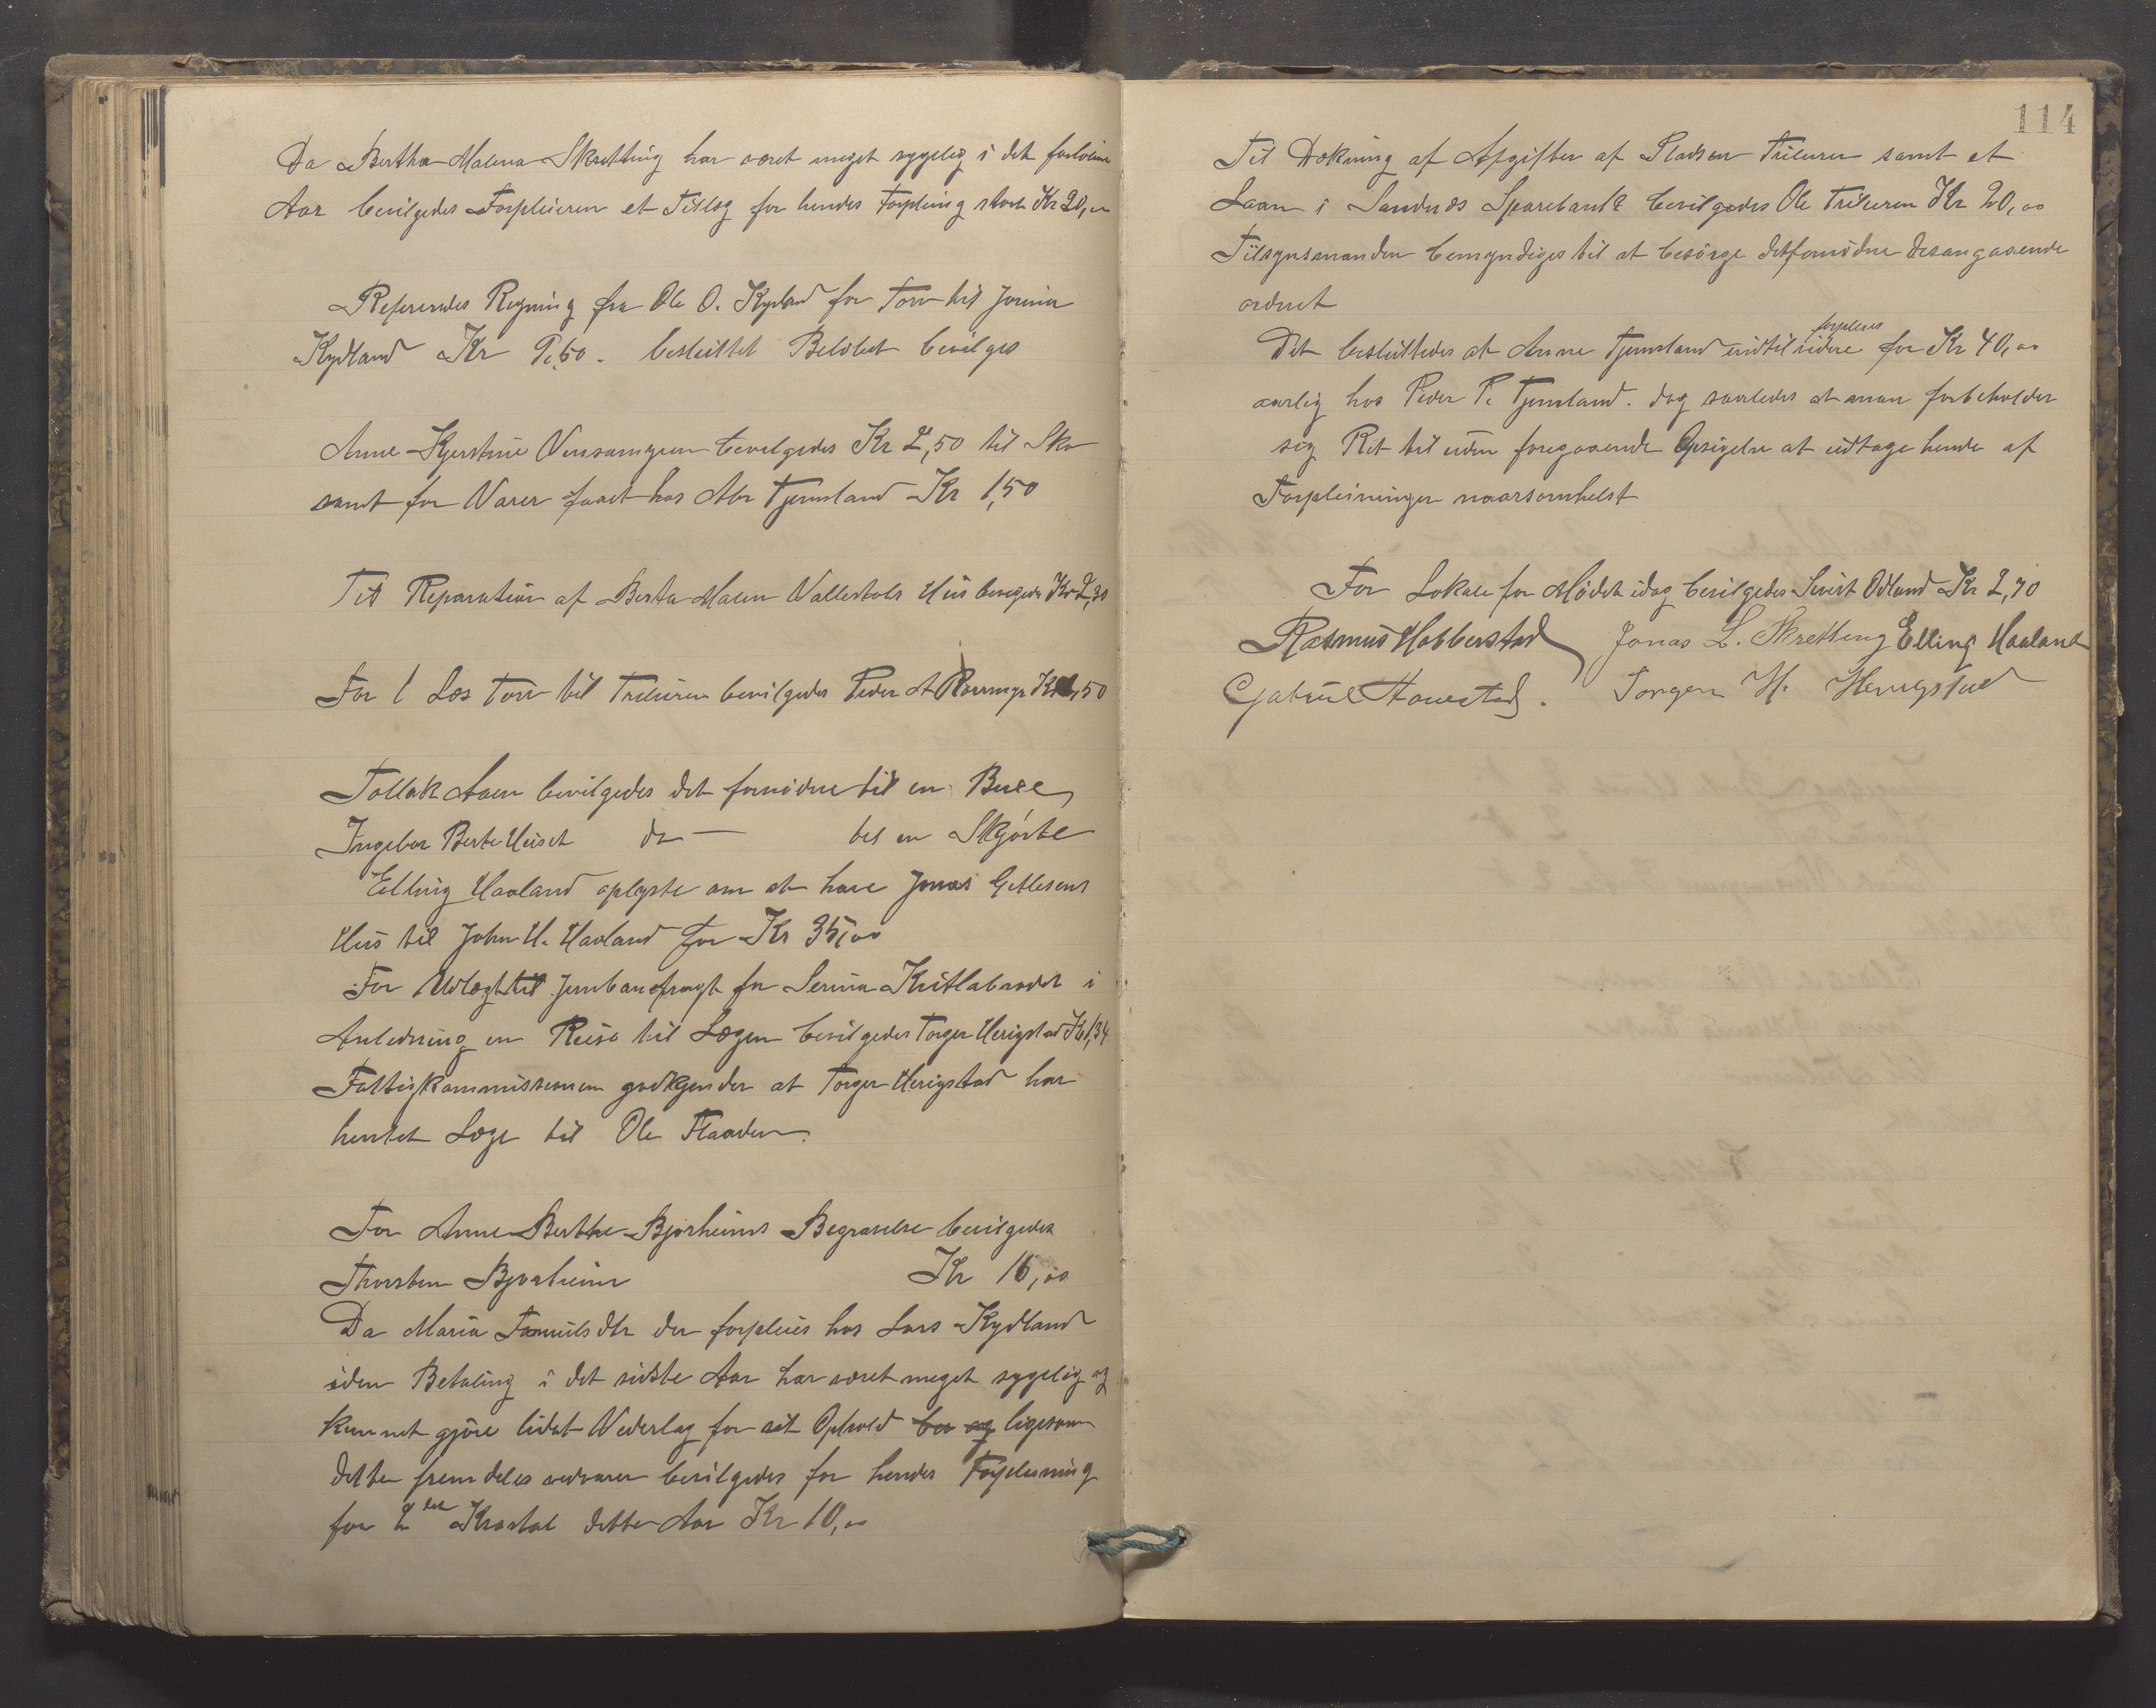 Da Bertha Malena Skretting har været meget sygelig i det forløbne
Aar bevilgedes Forpleieren et Tillæg for hendes Forpleining stort Kr 20,00
Refereredes Regning fra Ole O. Kydland for Torv til
Kydland Kr 50. besluttet Beløbet bevilges
Anne Kjerstine bevilgedes Kr 2,50 til Sko
samt for Varer faaet hos Abr Tjemsland Kr 1,50
Til Reparation af Berta Malen Hus Kr 2,30
For 1 Læs Torv til bevilgedes Peder A 50
Tollak Aaen bevilgedes det fornødne til en Buxe
Ingebor Berte Huset do — til en Skjørte
Elling Haaland oplyste om at have Jonas Getlesens
Hus til John H. Haaland for Kr 35,00
For Udlæg til Jernbanefragt for Serina i
Anledning en Reise til Lægen bevilgedes Torger Herigstad Kr 1,34
Fattigkommissionen godkjender at Torger Herigstad har
hentet Læge til Ole Flaaden.
For Anne Berthe Bjorheims Begravelse bevilgedes
Thorsten Bjorheim Kr 16,00
Da Maria dtr der forpleies hos Lars Kydland
uden Betaling i det sidste Aar har været meget sygelig og
kunnet gjøre lidet Vederlag for sit Ophold ligesom
dette fremdeles vedvarer bevilgedes for hendes Forpleining
for 2det Kvartal dette Aar Kr 10,00
114
Til Dækning af Afgifter af Pladsen samt et
Laan i Sandnæs Sparebank bevilgedes Ole Kr 20,00
Tilsynsmanden bemyndiges til at besørge det fornødne desangaaende
ordnet
Det besluttedes at Anne Tjemsland indtil videre forpleies for Kr 40,00
aarlig hos Peder P. Tjemsland. dog saaledes at man forbeholder
sig Ret til uden foregaaende Opsigelse at udtage hende af
Forpleiningen naarsomhelst
For Lokale for Mødet idag bevilgedes Sivert Odland Kr 2,70
Rasmus Hobberstad Jonas L. Skretting Elling Haaland
Gabriel Torger H. Herigstad